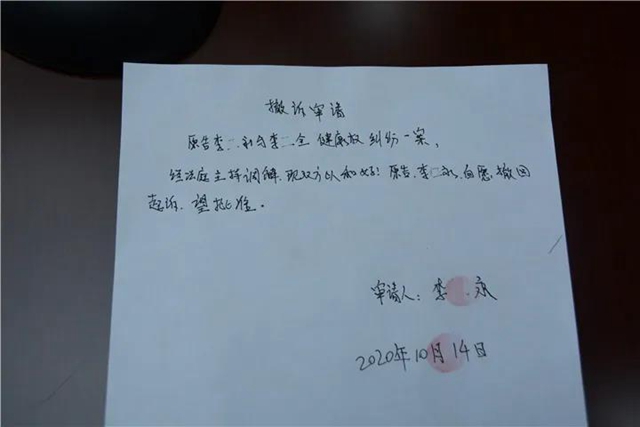 撤诉申请
原告李二永与李二全健康权纠纷一案,
经法庭主持调解,现双方以和好!原告李二永自愿撤回
起诉,望批准。
申请人:李 永
2020年10月14日